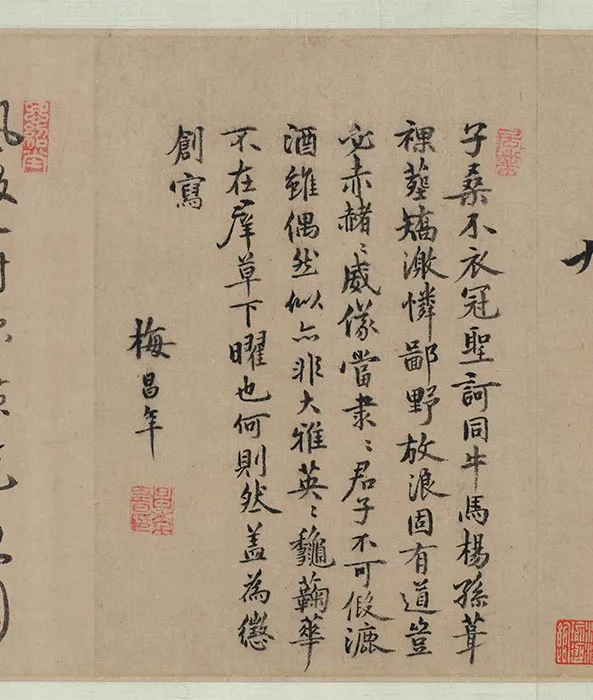 子桑不衣冠聖訶同牛馬楊孫
裸葬矯激憐鄙野放浪固有道豈
必赤赭〻威儀當隶〻君子不可假漉
酒雖偶然似亦非大雅英〻龝蘜華
不在羣草下曜也何則然盖為懲
創寫
梅昌年